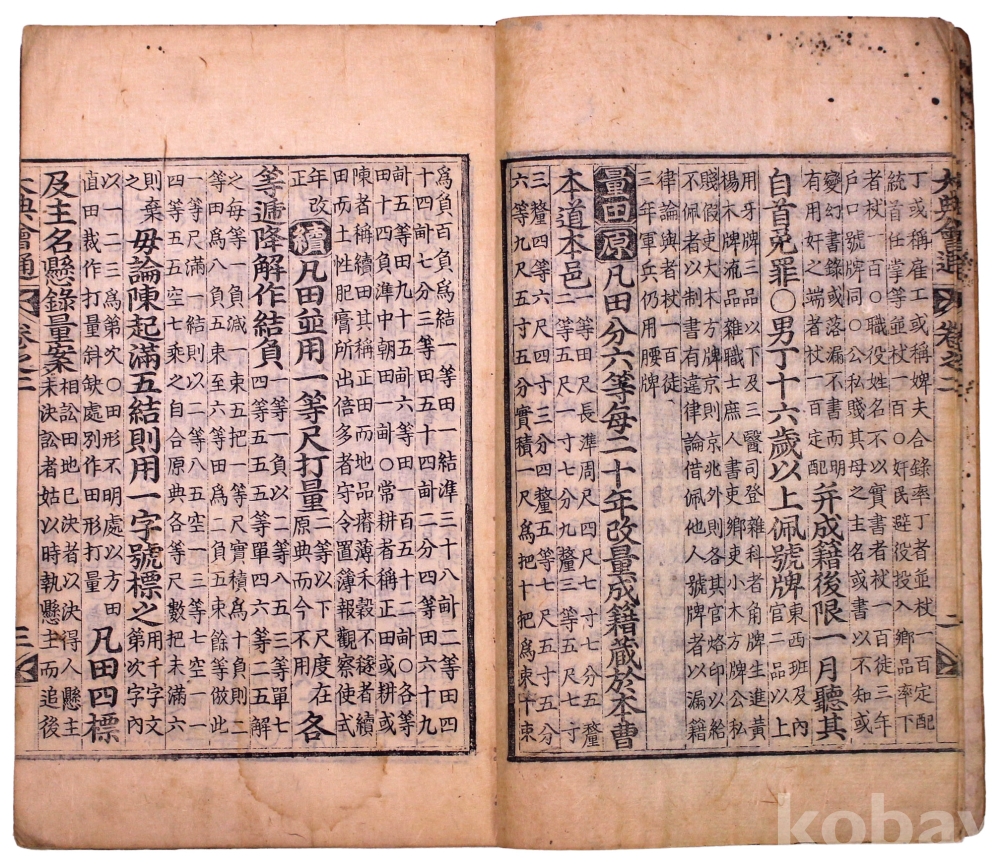 大典會通 卷之二 二
丁或稱雇工或稱婢夫合錄率丁者並杖一百定配
統首任掌等並杖一百○奸民避役投入鄉品率下
者杖一百○職役姓名不以實書者杖一百徒三年
戶口號牌同○公私賤其母之主名或書以不知或
變幻書錄或落漏不書而
有用奸之端者杖一百定配
并成籍後限一月聽其
自首免罪○男丁十六歲以上佩號牌
東西班及內
官二品以上
用牙牌三品以下及三醫司登雜科者角牌生進黃
楊木牌流品雜職士庶人書吏鄉吏小木方牌公私
賤假吏大木方牌京則京兆外則各其官烙印以給
不佩者以制書有違律論借佩他人號牌者以漏籍
律論與者杖一百徒
三年軍兵仍用腰牌
量田 原 凡田分六等每二十年改量成籍藏於本曹
本道本邑
一等田尺長準周尺四尺七寸七分五釐
二等五尺一寸七分九釐三等五尺七寸
三釐四等六尺四寸三分四釐五等七尺五寸五分
六等九尺五寸五分實積一尺爲把十把爲束十束
爲負百負爲結一等田一結準三十八畝二等田四
十四畝七分三等田五十四畝二分四等田六十九
畝五等田九十五畝六等田一百五十二畝○各等
田十四負準中朝田一畝○常耕者稱正田或耕或
陳者稱續田其稱正田而地品瘠薄禾穀不穟者續
田而土性肥膏所出倍多者守令置簿報觀察使式
年改
正
續 凡田並用一等尺打量
二等以下尺度在
原典而今不用
各
等遞降解作結負
一等一負以二等八五三等單七
四等五五五等單四六等二五解
之每等一負減一束五把一等尺實積爲十負則二
等田爲八負五束至六等田爲二負五束餘等倣此
一等滿一結則以二等八五空一三等七空一一
四等五五空七乘之自合原典各等尺數把未滿六
則棄
之
毋論陳起滿五結則用一字號標之
用千字文
第次字內
以一二三爲第次○田形不明處以方田
直田裁作打量斜缺處別作田形打量
凡田四標
及主名懸錄量案
相訟田地已決者以決得人懸主
未決訟者姑以時執懸主而追後
大典會通 卷之二 三
kobay